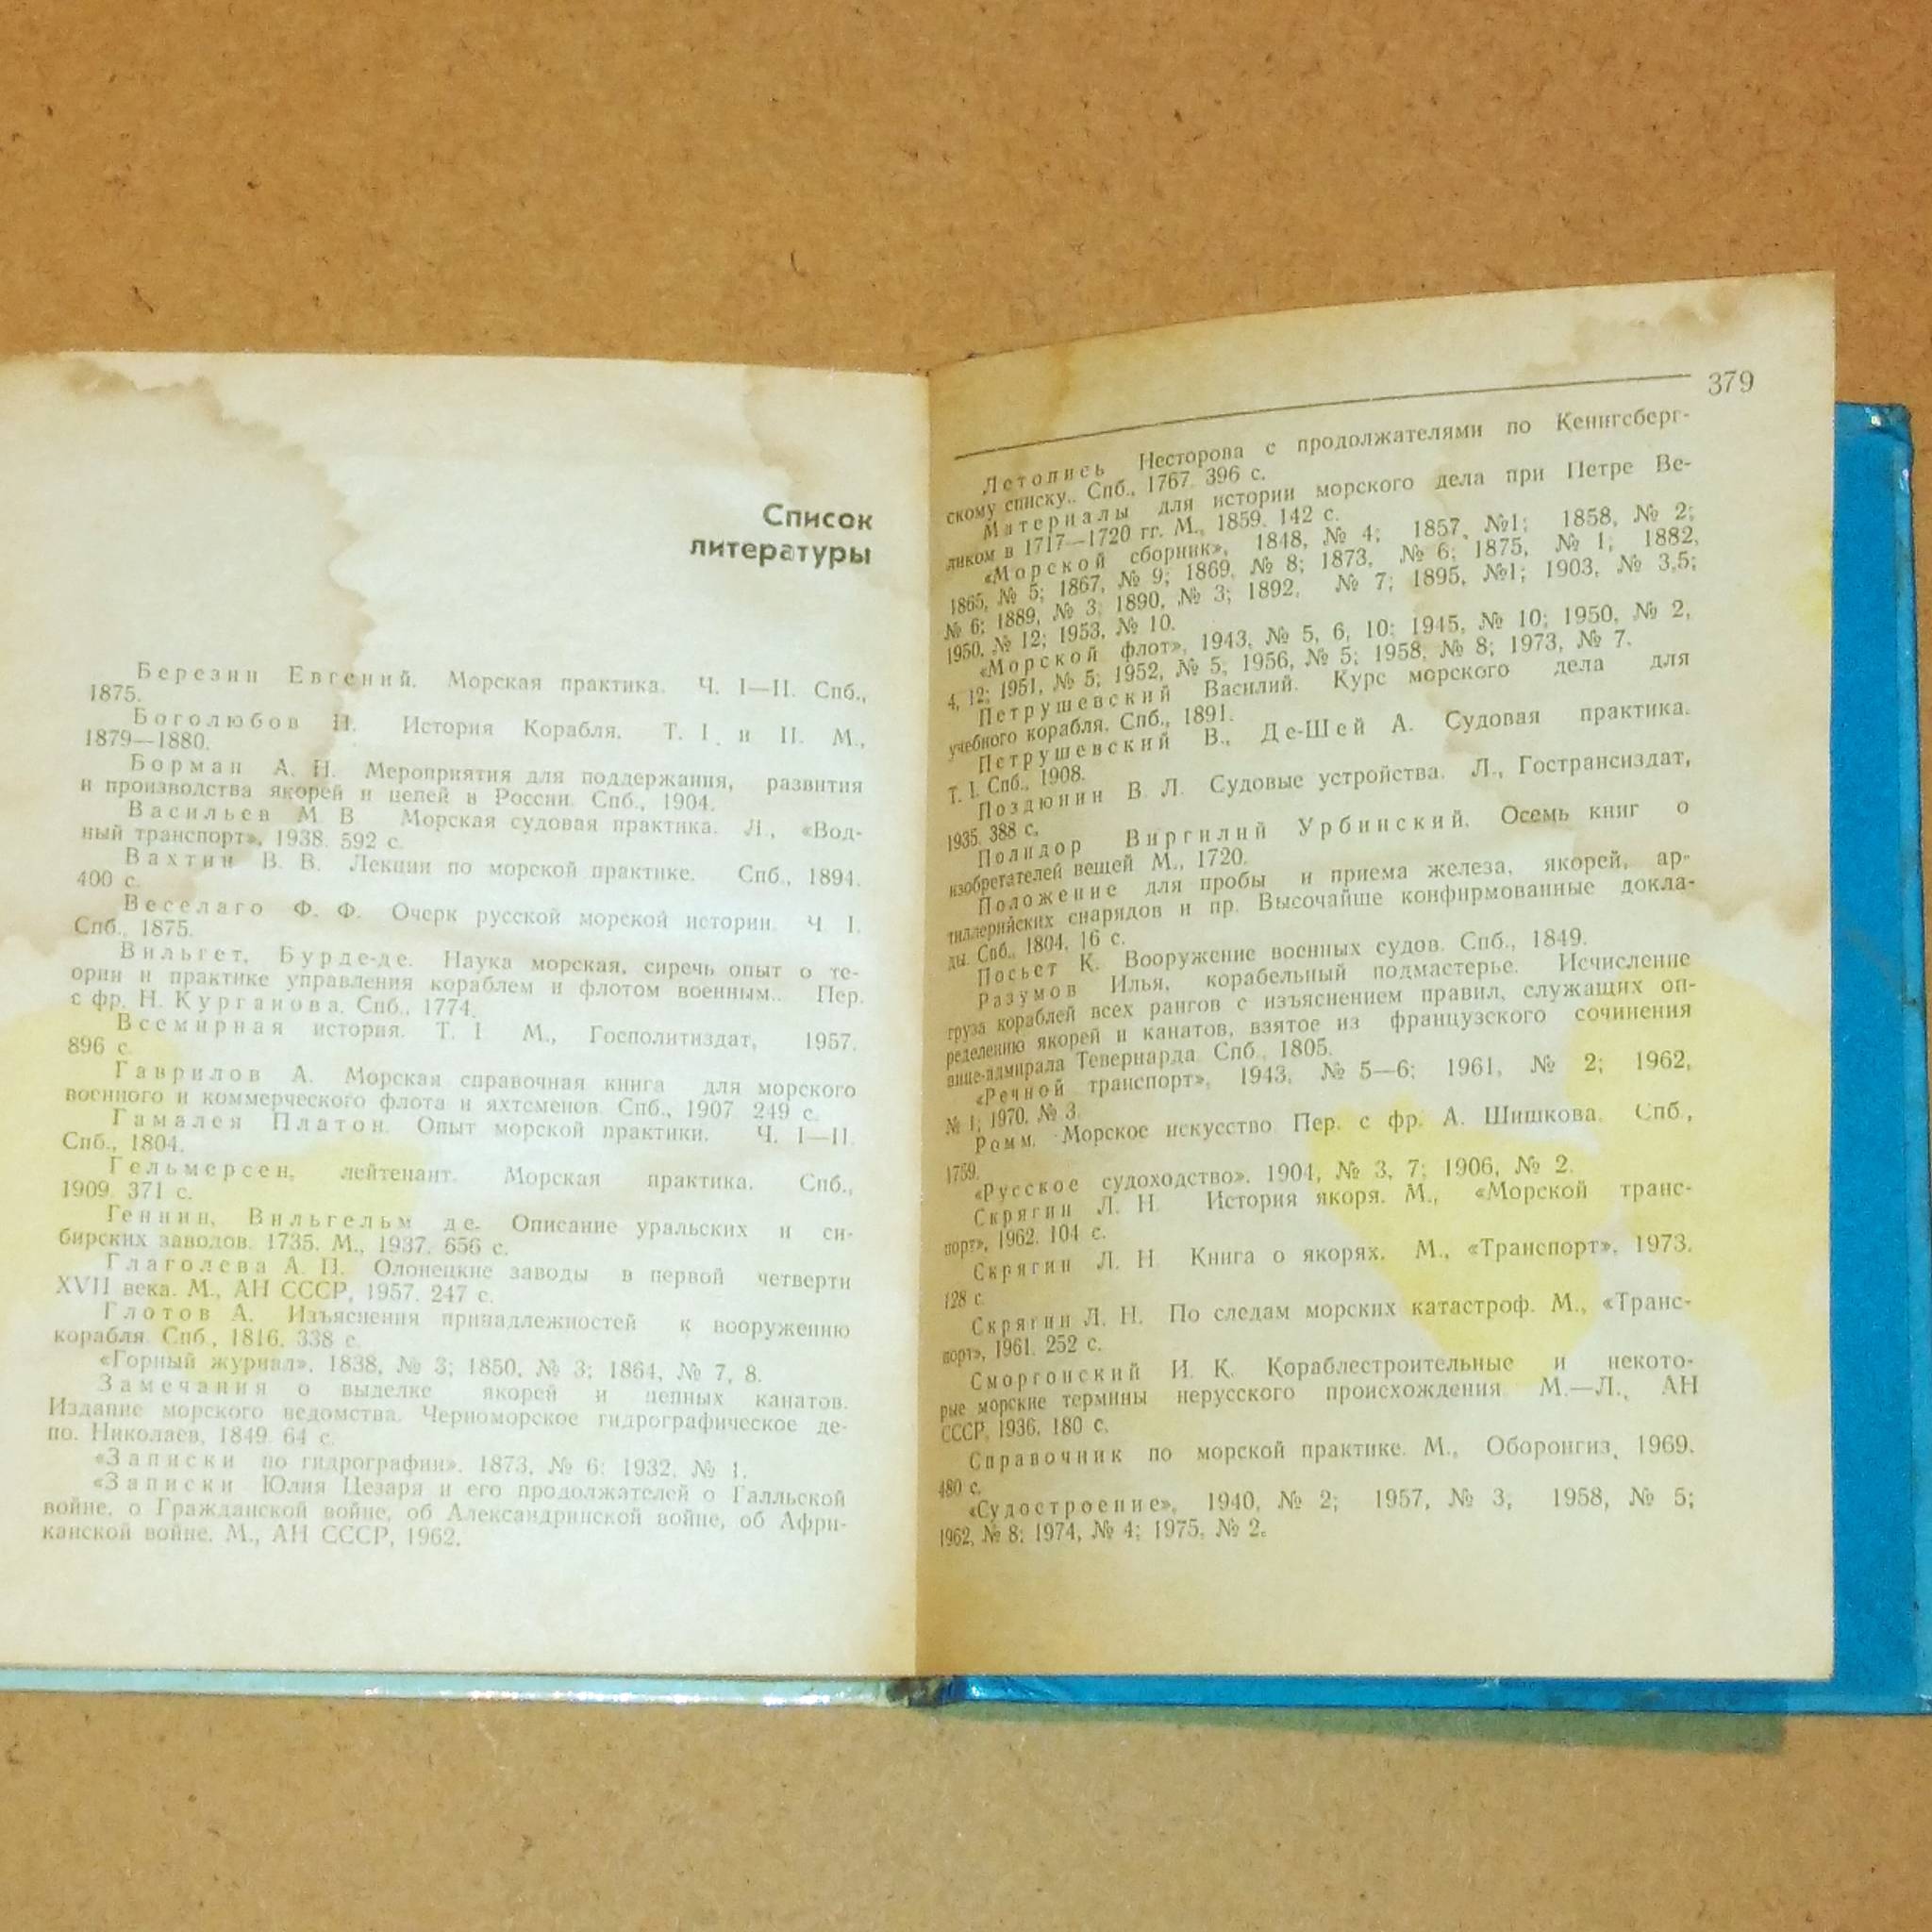 Список
литературы
Березин Евгений. Морская практика. Ч. I—II. Спб.,
1875.
Боголюбов Н. История Корабля. Т. I и II. М.,
1879—1880.
Борман А. Н. Мероприятия для поддержания, развития
и производства якорей и цепей в России. Спб., 1904.
Васильев М. В. Морская судовая практика. Л., «Вод-
ный транспорт», 1938. 592 с.
Вахтин В. В. Лекции по морской практике. Спб., 1894.
400 с.
Веселаго Ф. Ф. Очерк русской морской истории. Ч. I.
Спб., 1875.
Вильгет, Бурде-де. Наука морская, сиречь опыт о те-
ории и практике управления кораблем и флотом военным.. Пер.
с фр. Н. Курганова. Спб., 1774.
Всемирная история. Т. I М., Госполитиздат, 1957.
896 с.
Гаврилов А. Морская справочная книга для морского
военного и коммерческого флота и яхтсменов. Спб., 1907. 249 с.
Гамалея Платон. Опыт морской практики. Ч. I—II.
Спб., 1804.
Гельмерсен, лейтенант. Морская практика. Спб.,
1909. 371 с.
Геннин, Вильгельм де. Описание уральских и си-
бирских заводов. 1735. М., 1937. 656 с.
Глаголева А. П. Олонецкие заводы в первой четверти
XVII века. М., АН СССР, 1957. 247 с.
Глотов А. Изъяснения принадлежностей к вооружению
корабля. Спб., 1816. 338 с.
«Горный журнал», 1838, № 3; 1850, № 3; 1864, № 7, 8.
Замечания о выделке якорей и цепных канатов.
Издание морского ведомства. Черноморское гидрографическое де-
по. Николаев, 1849. 64 с.
«Записки по гидрографии». 1873, № 6; 1932, № 1.
«Записки Юлия Цезаря и его продолжателей о Галльской
войне, о Гражданской войне, об Александринской войне, об Афри-
канской войне. М., АН СССР, 1962.
379
Летопись Несторова с продолжателями по Кенигсберг-
скому списку.. Спб., 1767. 396 с.
Материалы для истории морского дела при Петре Ве-
ликом в 1717—1720 гг. М., 1859. 142 с.
«Морской сборник», 1848, № 4; 1857, №1; 1858, № 2;
1865, № 5; 1867, № 9; 1869, № 8; 1873, № 6; 1875, № 1; 1882,
№ 6; 1889, № 3; 1890, № 3; 1892, № 7; 1895, №1; 1903, № 3,5;
1950, № 12; 1953, № 10.
«Морской флот», 1943, № 5, 6, 10; 1945, № 10; 1950, № 2,
4, 12; 1951, № 5; 1952, № 5; 1956, № 5; 1958, № 8; 1973, № 7.
Петрушевский Василий. Курс морского дела для
учебного корабля. Спб., 1891.
Петрушевский В., Де-Шей А. Судовая практика.
Т. I. Спб., 1908.
Поздюнин В. Л. Судовые устройства. Л., Гострансиздат,
1935. 388 с.
Полидор Виргилий Урбинский. Осемь книг о
изобретателей вещей М., 1720.
Положение для пробы и приема железа, якорей, ар-
тиллерийских снарядов и пр. Высочайше конфирмованные докла-
ды. Спб., 1804. 16 с.
Посьет К. Вооружение военных судов. Спб., 1849.
Разумов Илья, корабельный подмастерье. Исчисление
груза кораблей всех рангов с изъяснением правил, служащих оп-
ределению якорей и канатов, взятое из французского сочинения
вице-адмирала Тевернарда. Спб., 1805.
«Речной транспорт», 1943, № 5—6; 1961, № 2; 1962,
№ 1; 1970, № 3.
Ромм. Морское искусство. Пер. с фр. А. Шишкова. Спб.,
1759.
«Русское судоходство». 1904, № 3, 7; 1906, № 2.
Скрягин Л. Н. История якоря. М., «Морской транс-
порт», 1962. 104 с.
Скрягин Л. Н. Книга о якорях. М., «Транспорт», 1973.
128 с.
Скрягин Л. Н. По следам морских катастроф. М., «Транс-
порт», 1961. 252 с.
Сморгонский И. К. Кораблестроительные и некото-
рые морские термины нерусского происхождения М.—Л., АН
СССР, 1936. 180 с.
Справочник по морской практике. М., Оборонгиз, 1969.
480 с.
«Судостроение», 1940, № 2; 1957, № 3, 1958, № 5;
1962, № 8; 1974, № 4; 1975, № 2.